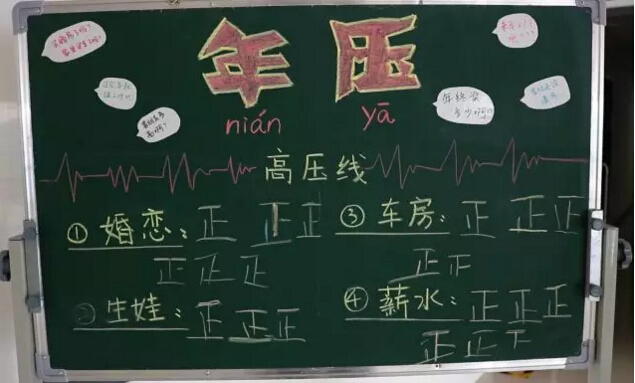 年压
nián yā
年终奖
多少啊?
高压线
① 婚恋: 正 正 正
正 正 正
② 生娃: 正 正 正
③ 车房: 正 正 正
正 正
④ 薪水: 正 正 正
正 正 下